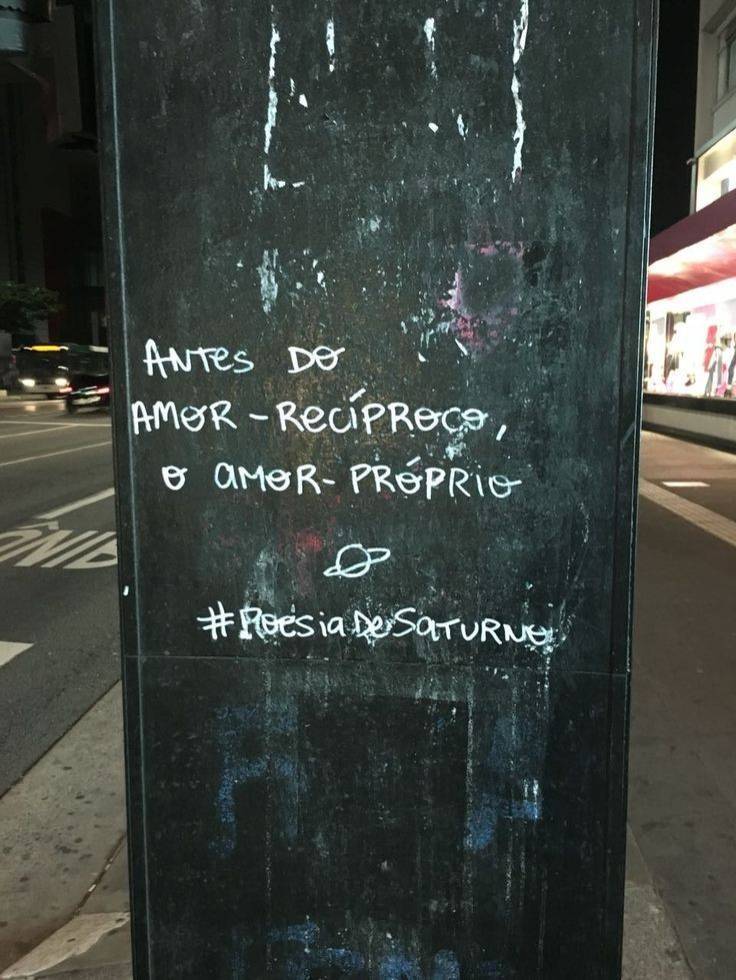 ANTES DO
AMOR-RECÍPROCO,
O AMOR-PRÓPRIO
#PoesiaDeSaturno